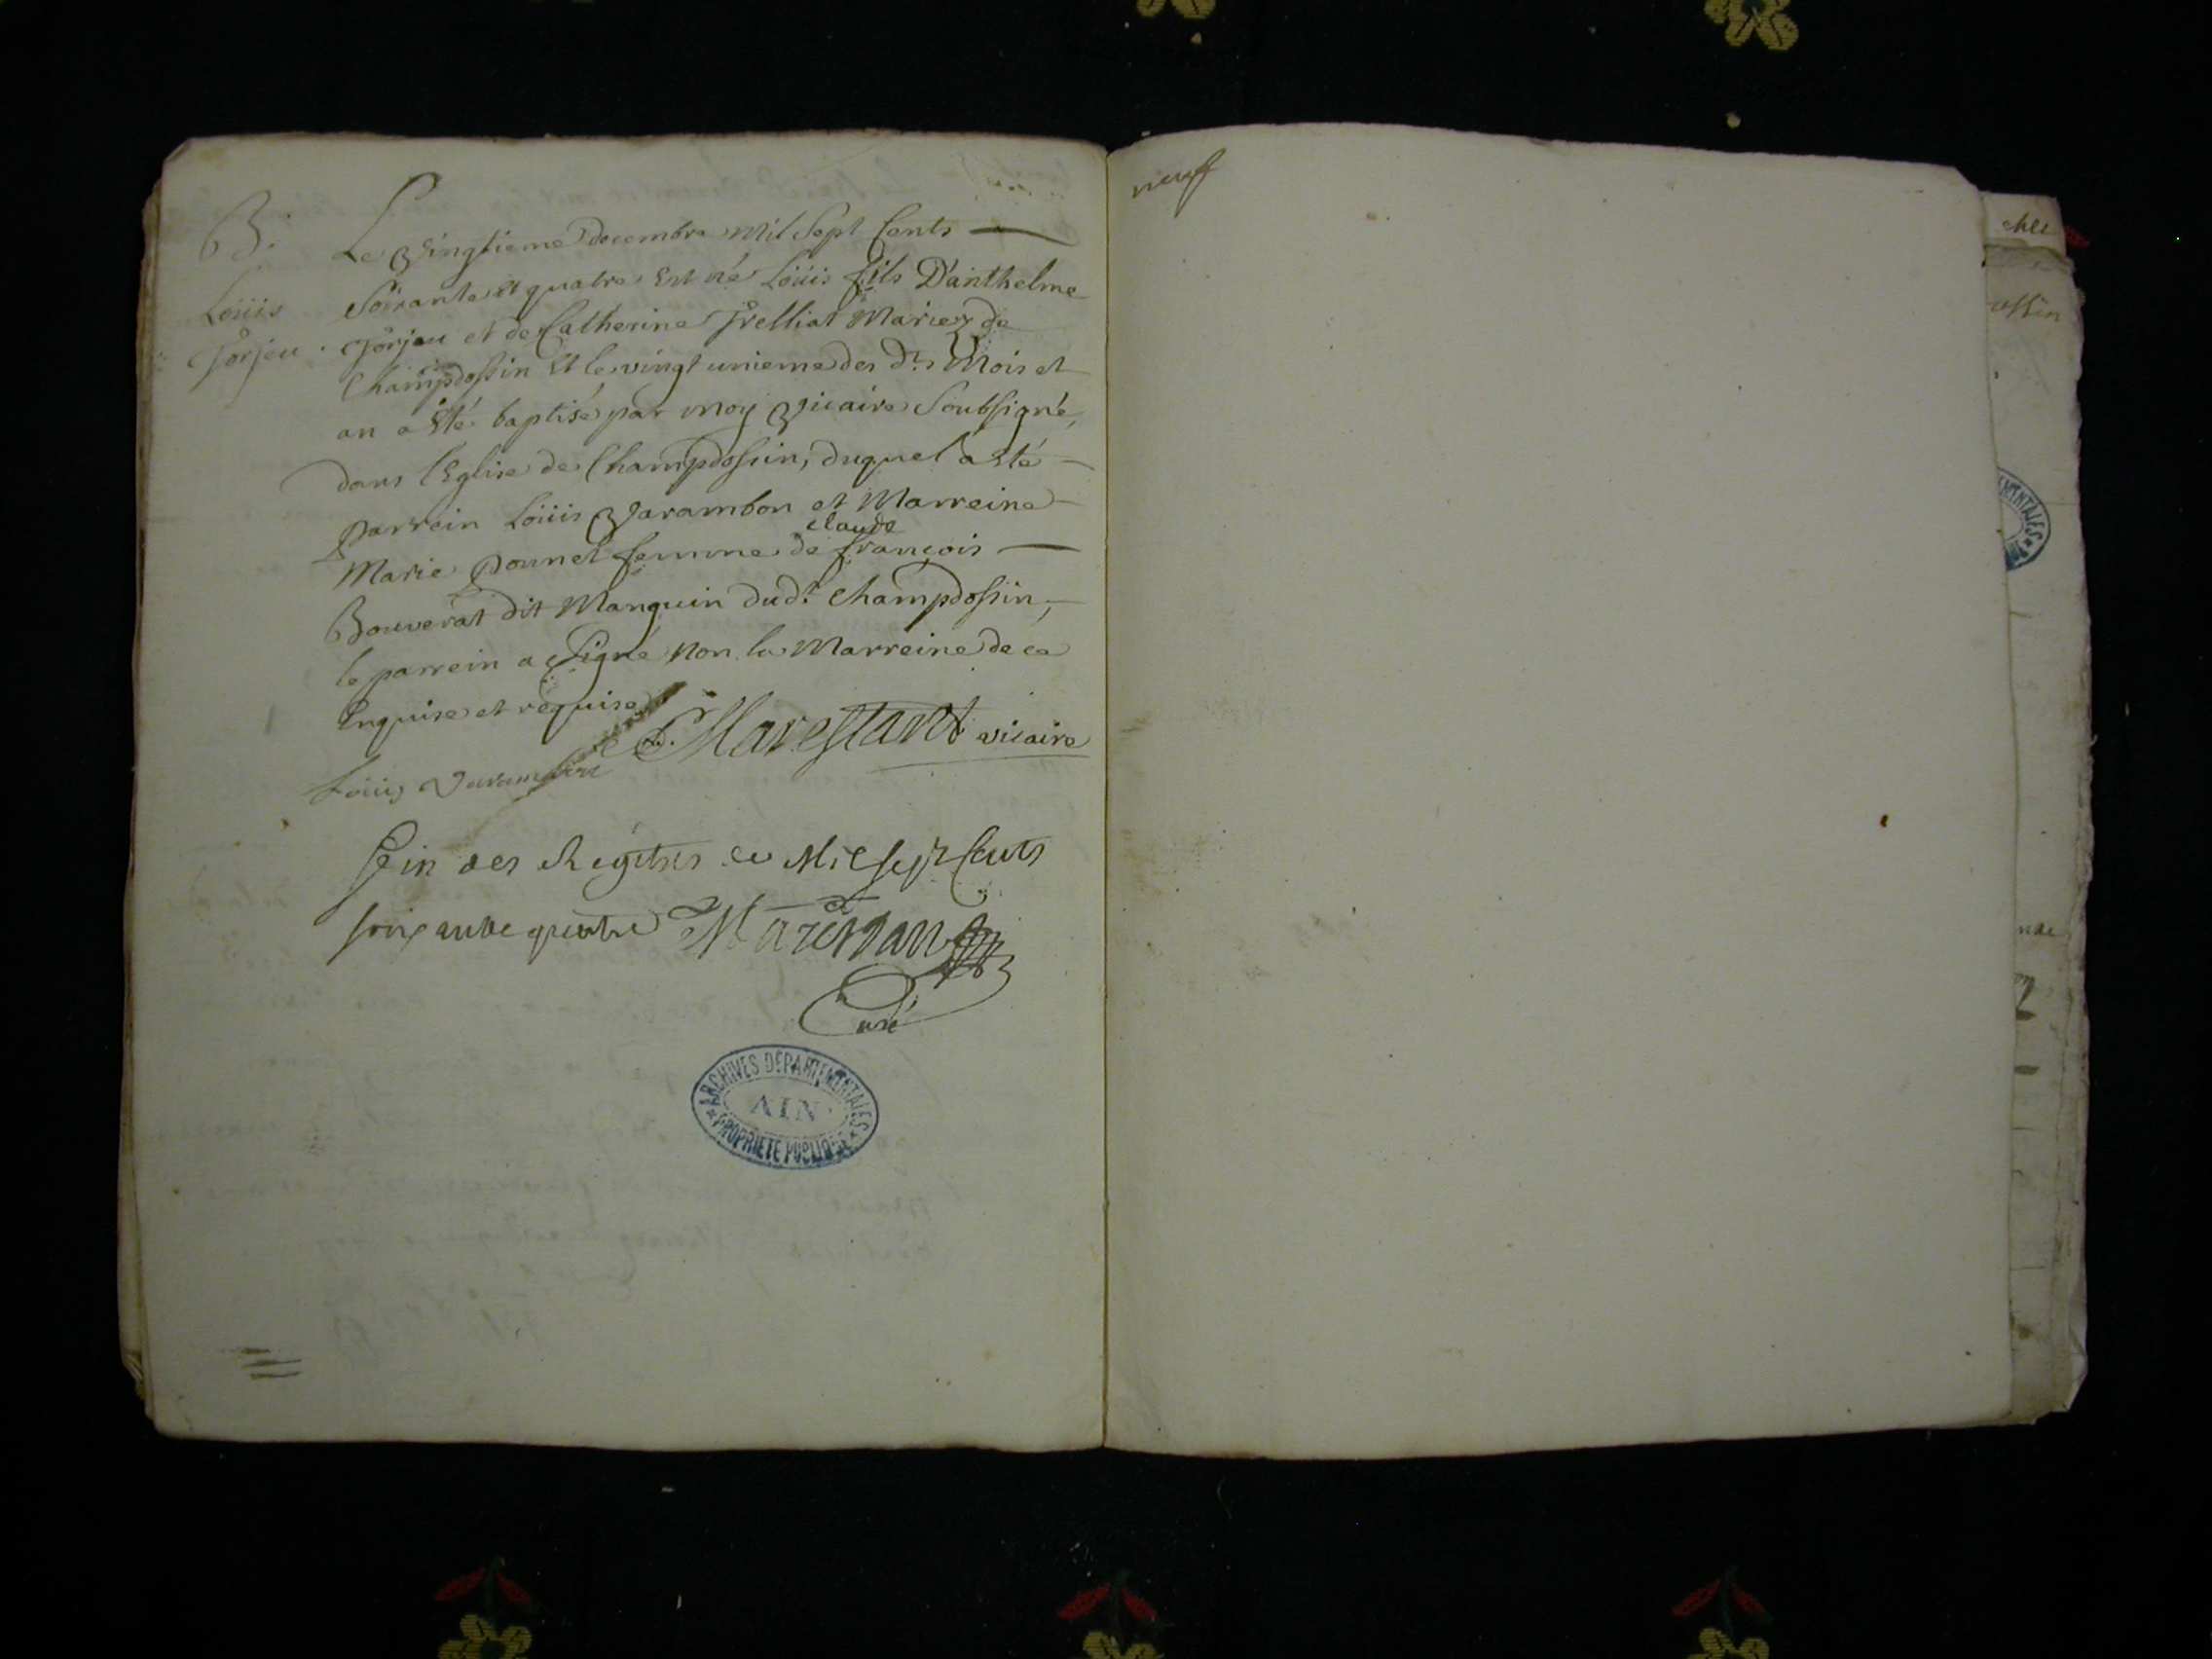 B.
Loüis
Jorjeu.
Le vingtieme decembre mil Sept Cents
Soixante et quatre Est né Loüis fils D'anthelme
Jorjeu et de Catherine Trelliat Mariez de
Champdossin Et le vingt unieme des dts Mois et
an a Eté baptisé par moy vicaire Soubsigné,
dans l'Eglise de Champdossin, duquel a eté
parrein Loüis Varambon et Marreine
claude
Marie Ponnet femme de françois
Bouverat dit Manguin dudt Champdossin,
le parrein a Signé Non la Marreine de ce
Enquise et requise
Marestant vicaire
Loüis Varambon
fin des Régitres de Mil sept Cents
soixante quatre Marestan
Curé
ARCHIVES DÉPARTEMENTALES
AIN
PROPRIÉTÉ PUBLIQUE
neuf
chee
ossin
MENTALES